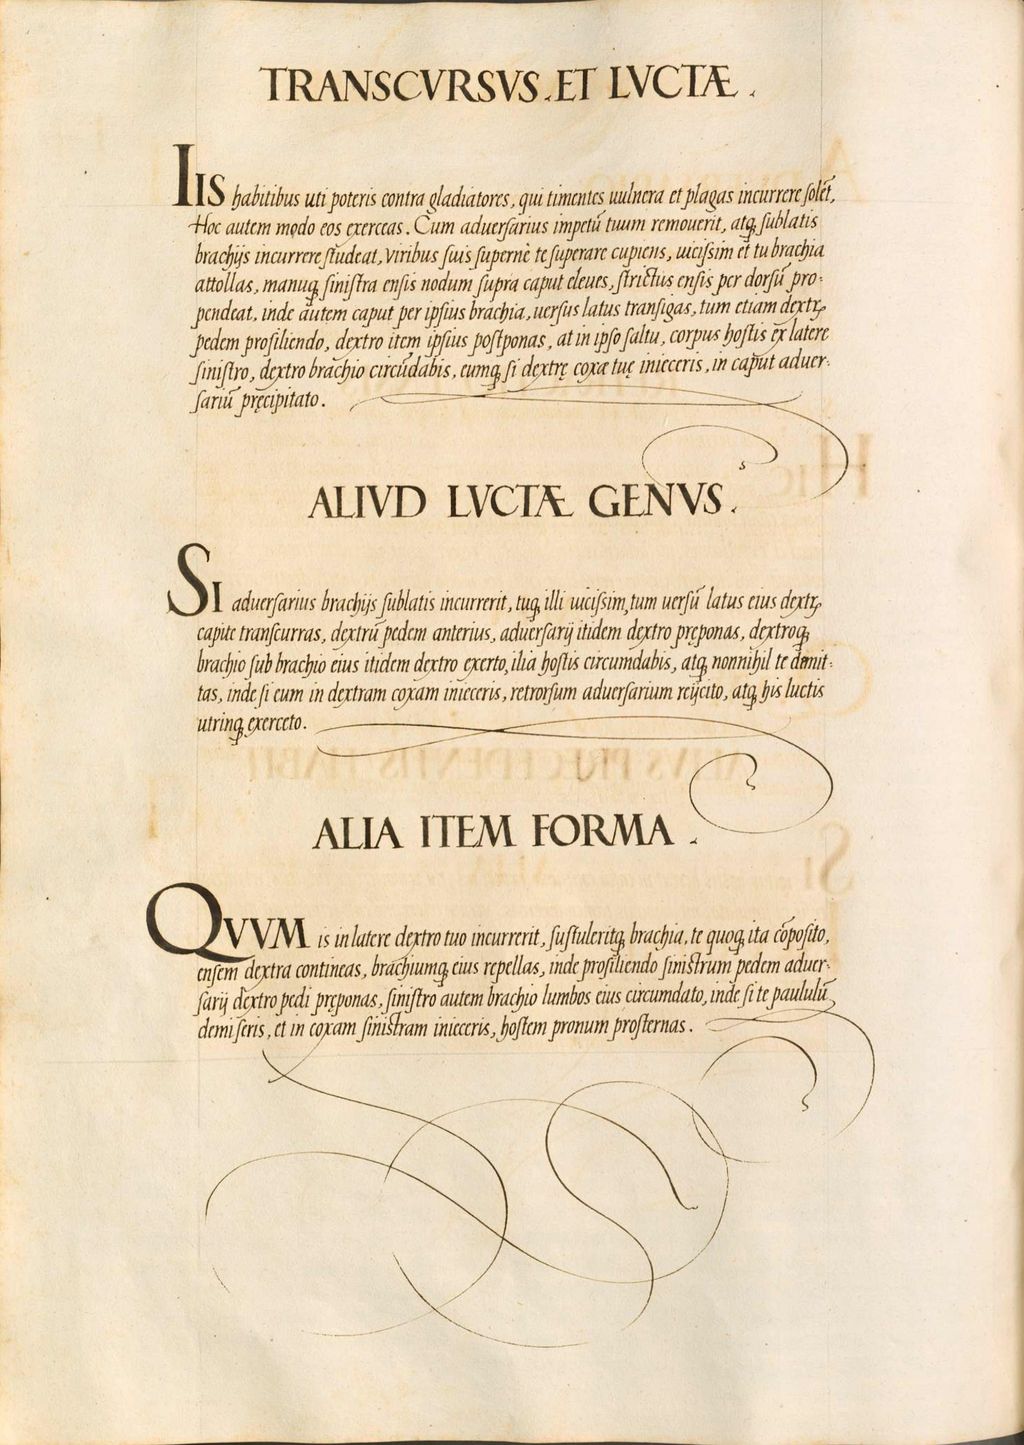 TRANSCVRSVS ET LVCTÆ.
IIS habitibus uti poteris contra gladiatores, qui timentes uulnera et plagas incurrere solẽt,
Hoc autem modo eos exerceas. Cum aduersarius impetũ tuum remouerit, atq̃ sublatis
brachijs incurrere studeat, viribus suis supernè te superare cupiens, uicissim et tu brachia
attollas, manuq̃ sinistra ensis nodum supra caput eleues, strictus ensis per dorsũ pro-
pendeat, inde autem caput per ipsius brachia, uersus latus transigas, tum etiam dextrę
pedem prosiliendo, dextro item ipsius postponas, at in ipso saltu, corpus hostis ex latere
sinistro, dextro brachio circũdabis, eumq̃ si dextrę coxæ tuę inieceris, in caput aduer-
sariũ pręcipitato.
ALIVD LVCTÆ GENVS.
SI aduersarius brachijs sublatis incurrerit, tuq̃ illi uicissim, tum uersũ latus eius dextrę
capite transcurras, dextrũ pedem anterius, aduersarij itidem dextro pręponas, dextroq̃
brachio sub brachio eius itidem dextro exerto, ilia hostis circumdabis, atq̃ nonnihil te demit-
tas, inde si eum in dextram coxam inieceris, retrorsum aduersarium reijcito, atq̃ his luctis
utrinq̃ exerceto.
ALIA ITEM FORMA.
QVVM is in latere dextro tuo incurrerit, sustuleritq̃ brachia, te quoq̃ ita cõposito,
ensem dextra contineas, brachiumq̃ eius repellas, inde prosiliendo sinistrum pedem aduer-
sarij dextro pedi pręponas, sinistro autem brachio lumbos eius circumdato, inde si te paululũ
demiseris, et in coxam sinistram inieceris, hostem pronum prosternas.